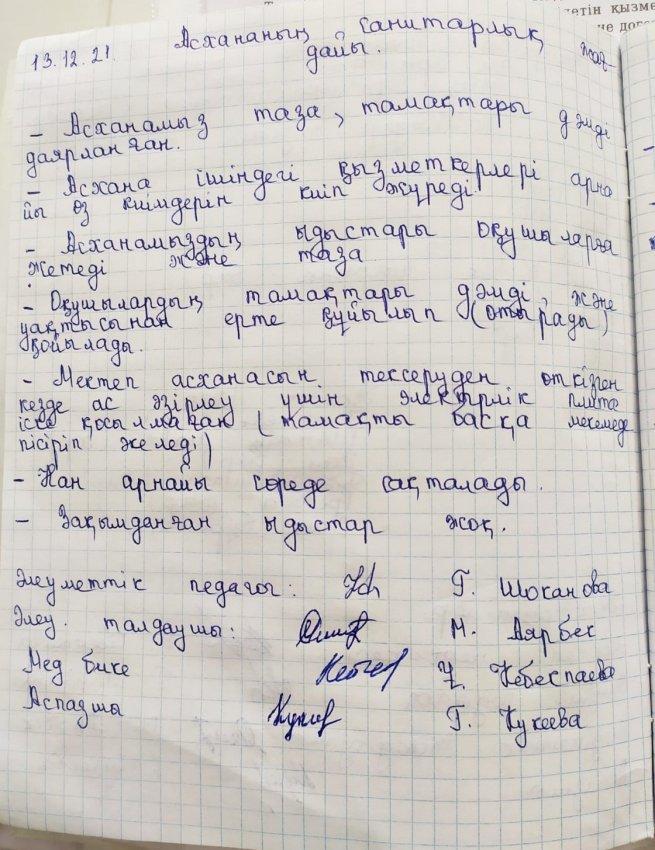 етін қызме
не дого
13.12.21. Асхананың санитарлық жағ
дайы.
– Асханамыз таза, тамақтары дәмді
даярланған.
– Асхана ішіндегі қызметкерлері арна
йы өз киімдерін киіп жүреді.
– Асханамыздың ыдыстары оқушыларға
жетеді және таза
– Оқушылардың тамақтары дәмді, және
уақтысынан ерте құйылып (отырады)
қойылады.
– Мектеп асханасын тексеруден өткізген
кезде ас әзірлеу үшін электрлік плита
іске қосылмаған (тамақты басқа мекемеде
пісіріп келеді)
– Нан арнайы сөреде сақталады.
– Зақымданған ыдыстар жоқ.
Әлеуметтік педагог: Г. Шоканова
Әлеу. талдаушы: М. Аярбек
Мед бике Ұ. Кебеспаева
Аспазшы Г. Кукеева